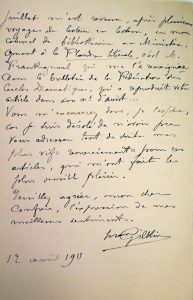 juillet m'est revenu, après plusieurs
voyages de bureau en bureau, en mon
cabinet de bibliothécaire au Ministère.
Quant à la Flandre libérale, c'est M.
qui me l'a renseignée
dans le Bulletin de la Fédération des
Cercles Dramatiques, qui a reproduit votre
article dans son n° d'août
Vous m'excuserez donc, je l'espère,
car je suis désolé de n'avoir pu
vous adresser tout de suite mes
plus vifs remerciements pour ces
articles, qui m'ont fait le
plus sensible plaisir.
Veuillez agréer, mon cher
Confrère, l'expression de mes
meilleurs sentiments.
Iwan Gilkin
12 1911